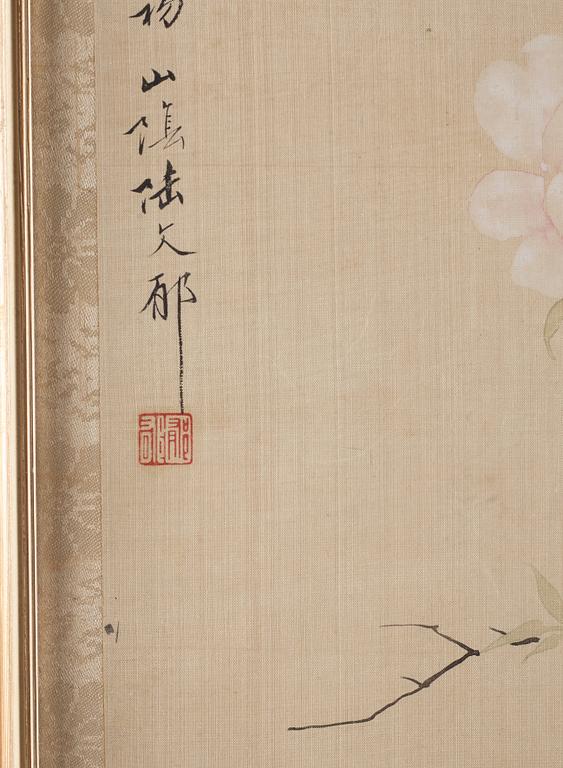 山陰陸文郁